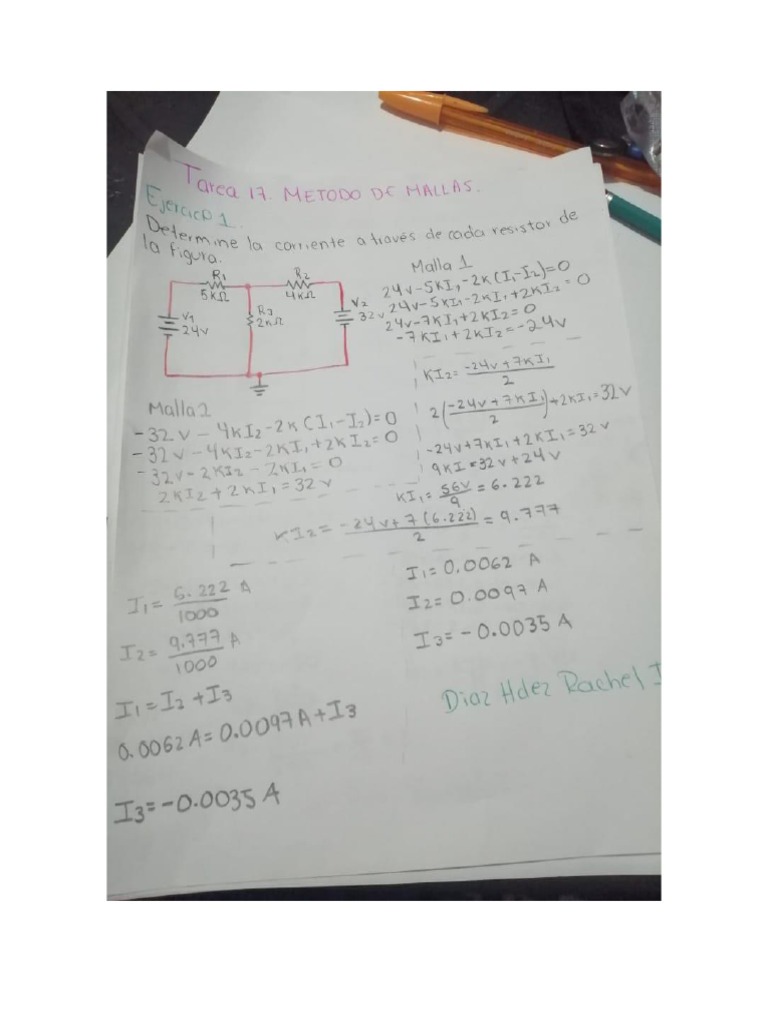 Tarea 17. METODO DE MALLAS.
Ejercicio 1.
Determine la corriente a través de cada resistor de
la figura.
R1
5KΩ
R2
4KΩ
R3
2KΩ
V1
24V
V2
32V
Malla 1
24V-5KI1-2K(I1-I2)=0
24V-5KI1-2KI1+2KI2=0
24V-7KI1+2KI2=0
-7KI1+2KI2=-24V
KI2=-24V+7KI1/2
2(-24V+7KI1/2)+2KI1=32V
-24V+7KI1+2KI1=32V
9KI=32V+24V
KI1=56V/9=6.222
KI2=-24V+7(6.222)/2=9.777
Malla 2
-32V-4KI2-2K(I1-I2)=0
-32V-4KI2-2KI1+2KI2=0
-32V-2KI2-2KI1=0
2KI2+2KI1=32V
I1=6.222/1000 A
I2=9.777/1000 A
I1=I2+I3
0.0062A=0.0097A+I3
I3=-0.0035A
I1=0.0062 A
I2=0.0097 A
I3=-0.0035 A
Diaz Hdez Rachel I